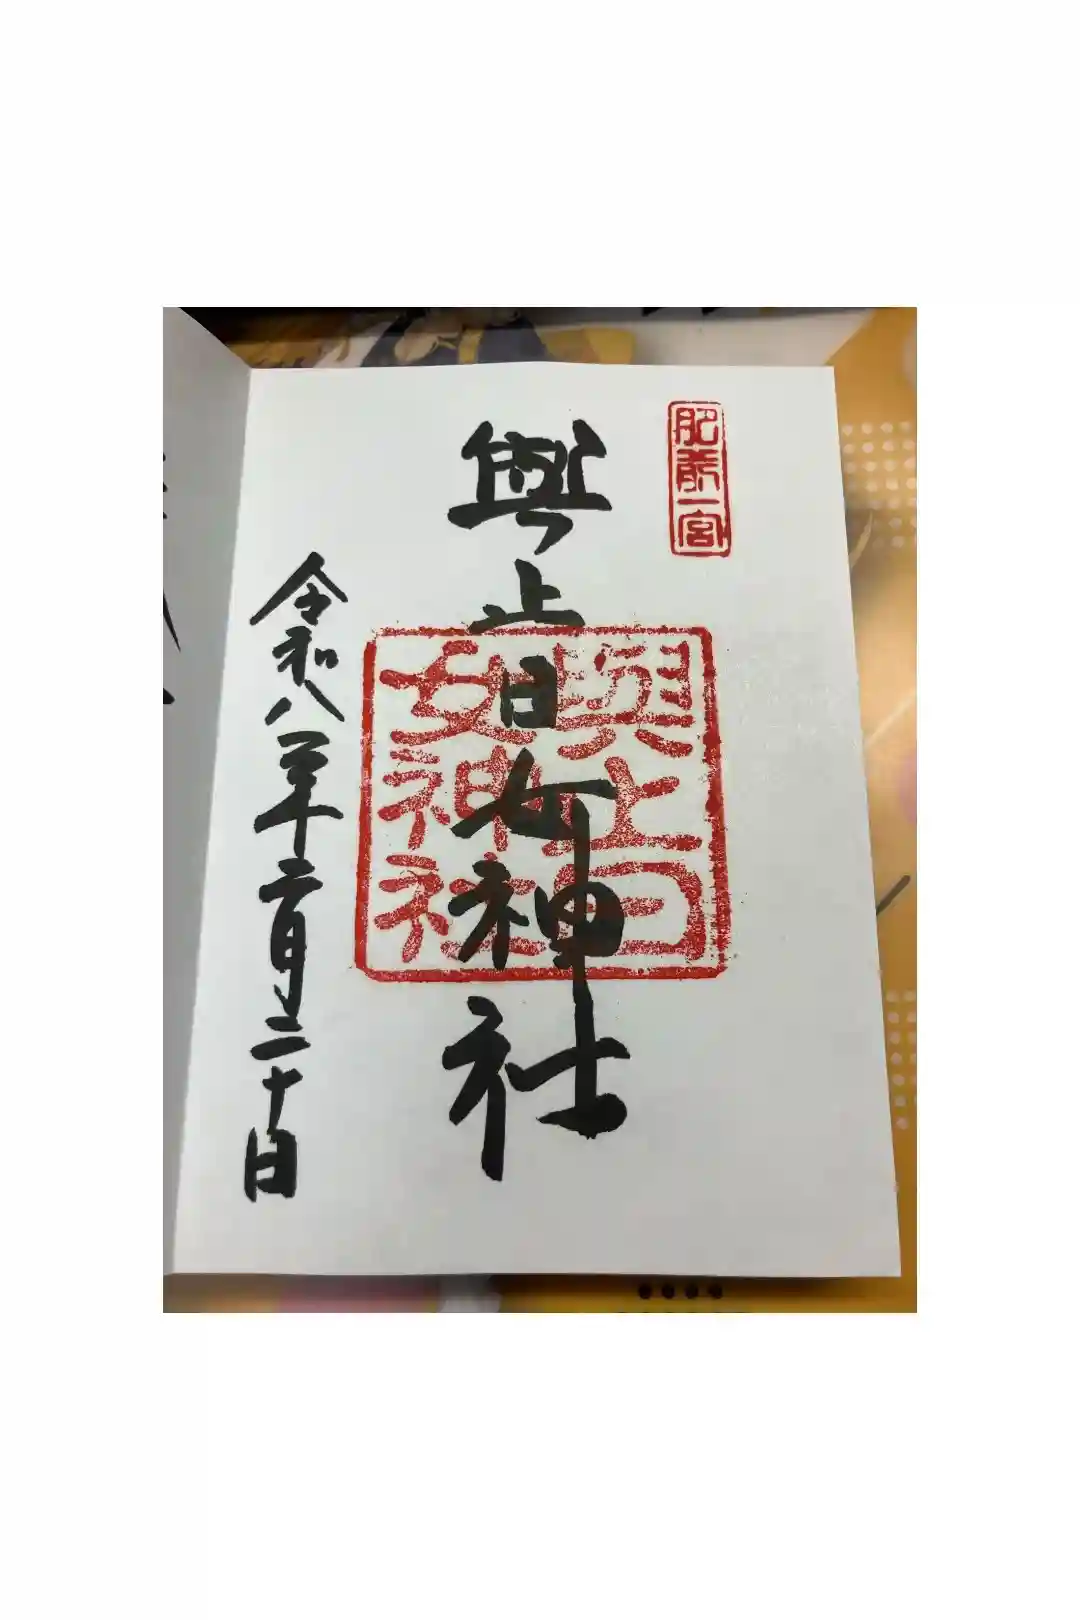 肥前一宮
與止日女神社
與止日
女神社
令和八年二月二十日